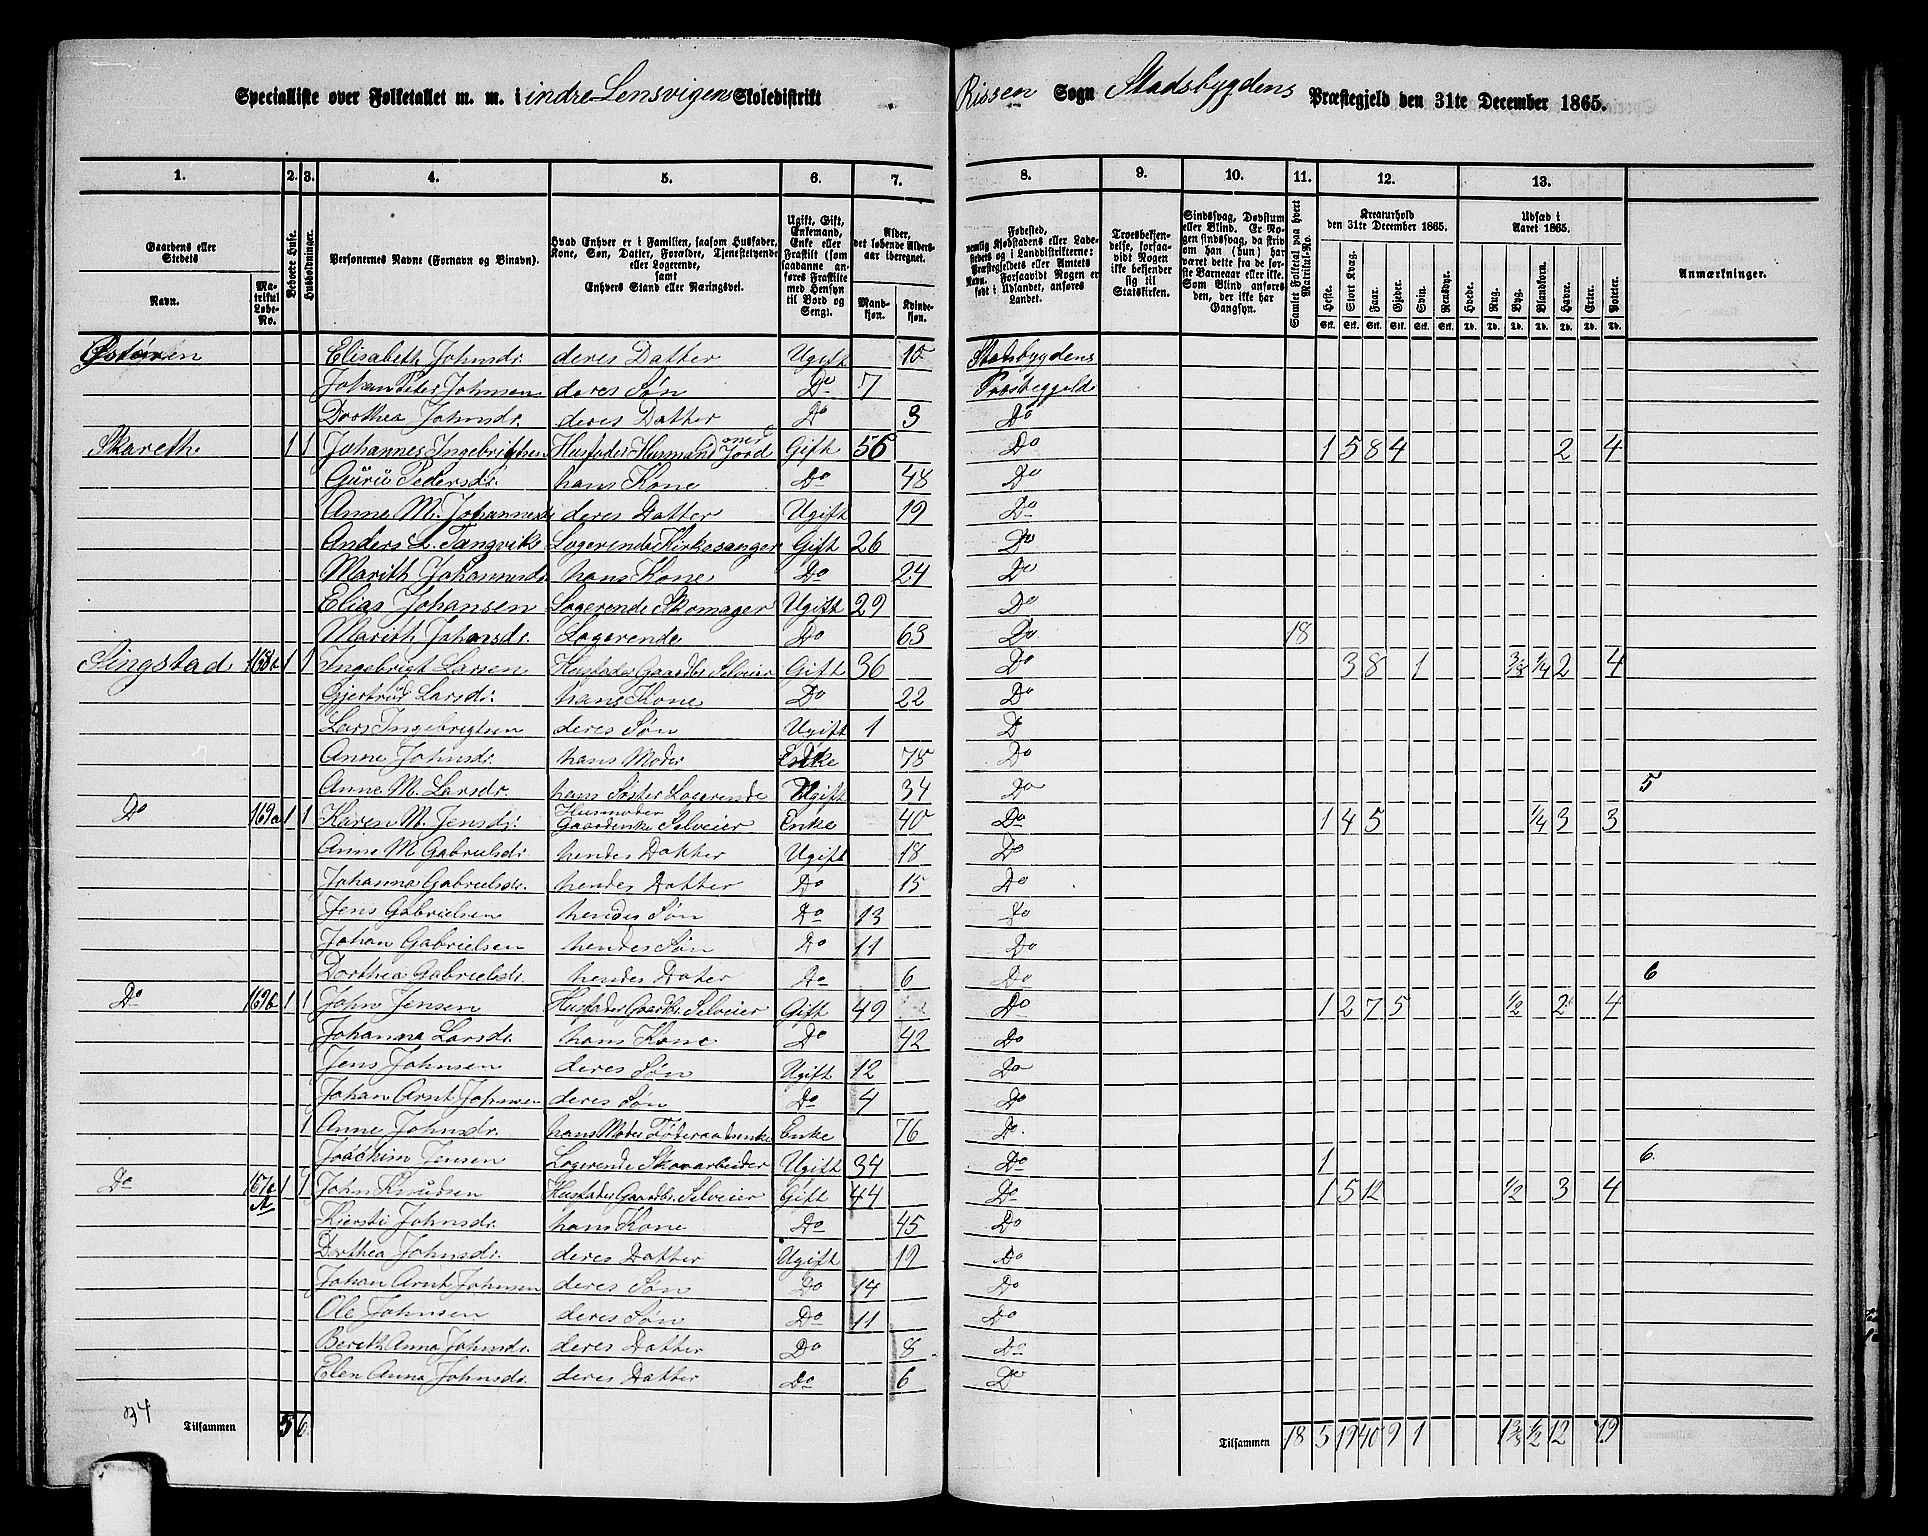 Specialliste over Folketallet m. m. i indre Lensvigens Skoledistrikt Rissen Sogn Stadsbygdens Præstegjeld den 31te December 1865.
1. 2. 3. 4. 5. 6. 7. 8. 9. 10. 11. 12. 13.
Gaardens eller Stedets
Navn.
Matrikul Løbe-No.
Beboede Huse.
Husholdninger.
Personernes Navne (Fornavn og Binavn).
Hvad Enhver er i Familien, saasom Husfader, Kone, Søn, Datter, Forældre, Tjenestetyende eller Logerende, samt Enhvers Stand eller Næringsvei.
Ugift, Gift, Enkemand, Enke eller Fraskilt (som saadanne anføres Fraskilte med Hensyn til Bord og Seng).
Alder, det løbende Aldersaar iberegnet.
Mandkjøn. Kvindekjøn.
Fødested, nemlig Kjøbstadens eller Ladestedets og i Landdistrikterne: Præstegjeldets eller Amtets Navn. Forsaavidt Nogen er født i Udlandet, anføres Landet.
Troesbekjendelse, forsaavidt Nogen ikke bekjender sig til Statskirken.
Sindssvag, Døvstum eller Blind. Er Nogen sindssvag, da skriv om han (hun) har været dette fra de første Barneaar eller ikke. Som Blind anføres den, der ikke har Gangsyn.
Samlet Folketal paa hvert Matrikul-No.
Kreaturhold den 31te December 1865.
Heste. Stort Kvæg. Faar. Gjeder. Svin. Rensdyr.
Udsæd i Aaret 1865.
Hvede. Rug. Byg. Blandkorn. Havre. Erter. Poteter.
Anmærkninger.
Elisabeth Johnsdr. deres Datter Ugift 10 Stadsbygdens
Johan Peter Johnsen deres Søn Do 7
Dorthea Johnsdr. deres Datter Do 3 Do
Skareth 1 1 Johannes Ingebrigtsen Husfader Husmand med Jord Gift 56 Do 1 5 8 4 2 4
Guru Pedersdr. hans Kone Do 48 Do
Anne M. Johannesdr deres Datter Ugift 19 Do
Anders L. Tangvik Logerende Kirkesanger Gift 26 Do
Marith Johannesdr hans Kone Do 24 Do
Elias Johansen Logerende Skomager Ugift 29 Do
Marith Johansdr. Logerende Do 63 Do 18
Singstad 168b 1 1 Ingebrigt Larsen Husfader Gaardbr. Selveier Gift 36 Do 3 8 1 3/8 1/4 2 4
Gjertrud Larsdr. hans Kone Do 22 Do
Lars Ingebrigtsen deres Søn Ugift 1 D
Anne Johnsdr. hans Moder Enke 78 Do
Anne M. Larsdr. hans Søster Logerende Ugift 34 Do 5
Do 169a 1 1 Karen M. Jensdr. Husmoder Gaardenke Selveier Enke 40 Do 1 4 5 1/4 3 3
Anne M Gabrielsdr hendes Datter Ugift 18 Do
Johanna Gabrielsdr. hendes Datter Do 15 Do
Jens Gabrielsen hendes Søn Do 13 Do
Johan Gabrielsen hendes Søn Do 11 Do
Dorthea Gabrielsdr. hendes Dater Do 6 Do 6
Do 169b 1 1 John Jensen Husfader Gaardbr. Selveier Gift 49 Do 1 2 7 5 1/2 2 4
Johanna Larsdr. hans Kone Do 42 Do
Jens Johnsen deres Søn Ugift 12 Do
Johan Arnt Johnsen deres Søn Do 4 Do
1 Anne Johnsdr. hans Moder Føderaadsenke Enke 76 Do
Joachim Jensen Logerende Skovarbeider Ugift 34 Do 1 6.
Do 167a A 1 1 John Knudsen Husfader Gaardbr. Selveier Gift 44 Do 1 5 12 1/2 3 4
Kjersti Johnsdr. hans Kone Do 45 Do
Dorthea Johnsdr. deres Datter Ugift 19 Do
Johan Arnt Johnsen deres Søn Do 14 Do
Ole Johnsen deres Søn Do 11 Do
Bereth Anna Johnsdr. deres Datter Do 8 Do
Elen Anna Johnsdr. deres Datter Do 6 Do
34 Tilsammen 5 6 Tilsammen 18 5 19 40 9 1 1 3/8 1/2 12 19